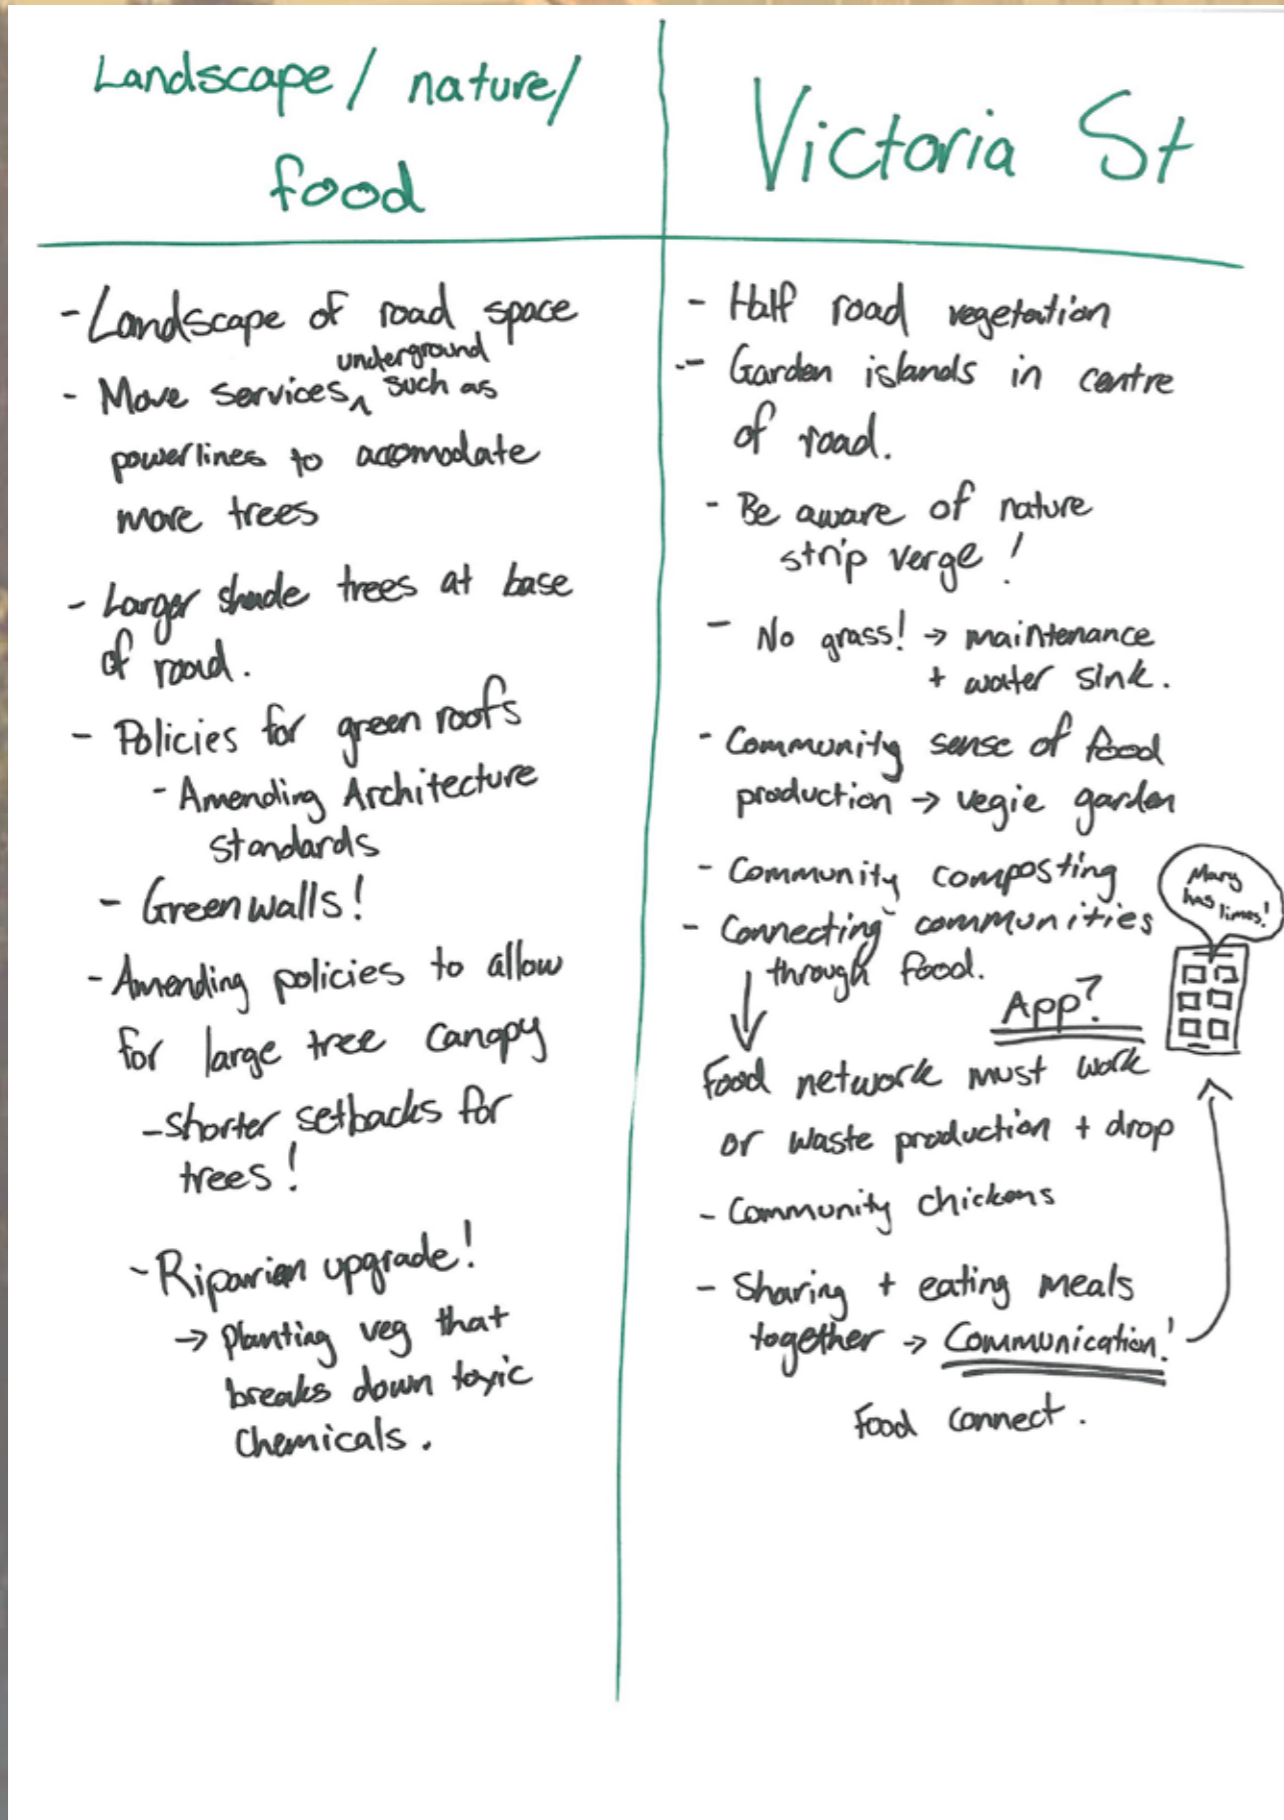 Landscape / nature /
food
- Landscape of road space
underground
- Move services, ^ such as
powerlines to accomodate
more trees
- Larger shade trees at base
of road.
- Policies for green roofs
- Amending Architecture
standards
- Green walls!
- Amending policies to allow
for large tree canopy
- shorter setbacks for
trees!
- Riparian upgrade!
→ planting veg that
breaks down toxic
chemicals.
Victoria St
- Half road vegetation
- Garden islands in centre
of road.
- Be aware of nature
strip verge!
- No grass! → maintenance
+ water sink.
- Community sense of food
production → vegie garden
- Community composting
- Connecting communities
through food.
Mary
has limes!
App?
Food network must work
or waste production + drop
- Community chickens
- Sharing + eating meals
together → Communication!
Food connect.